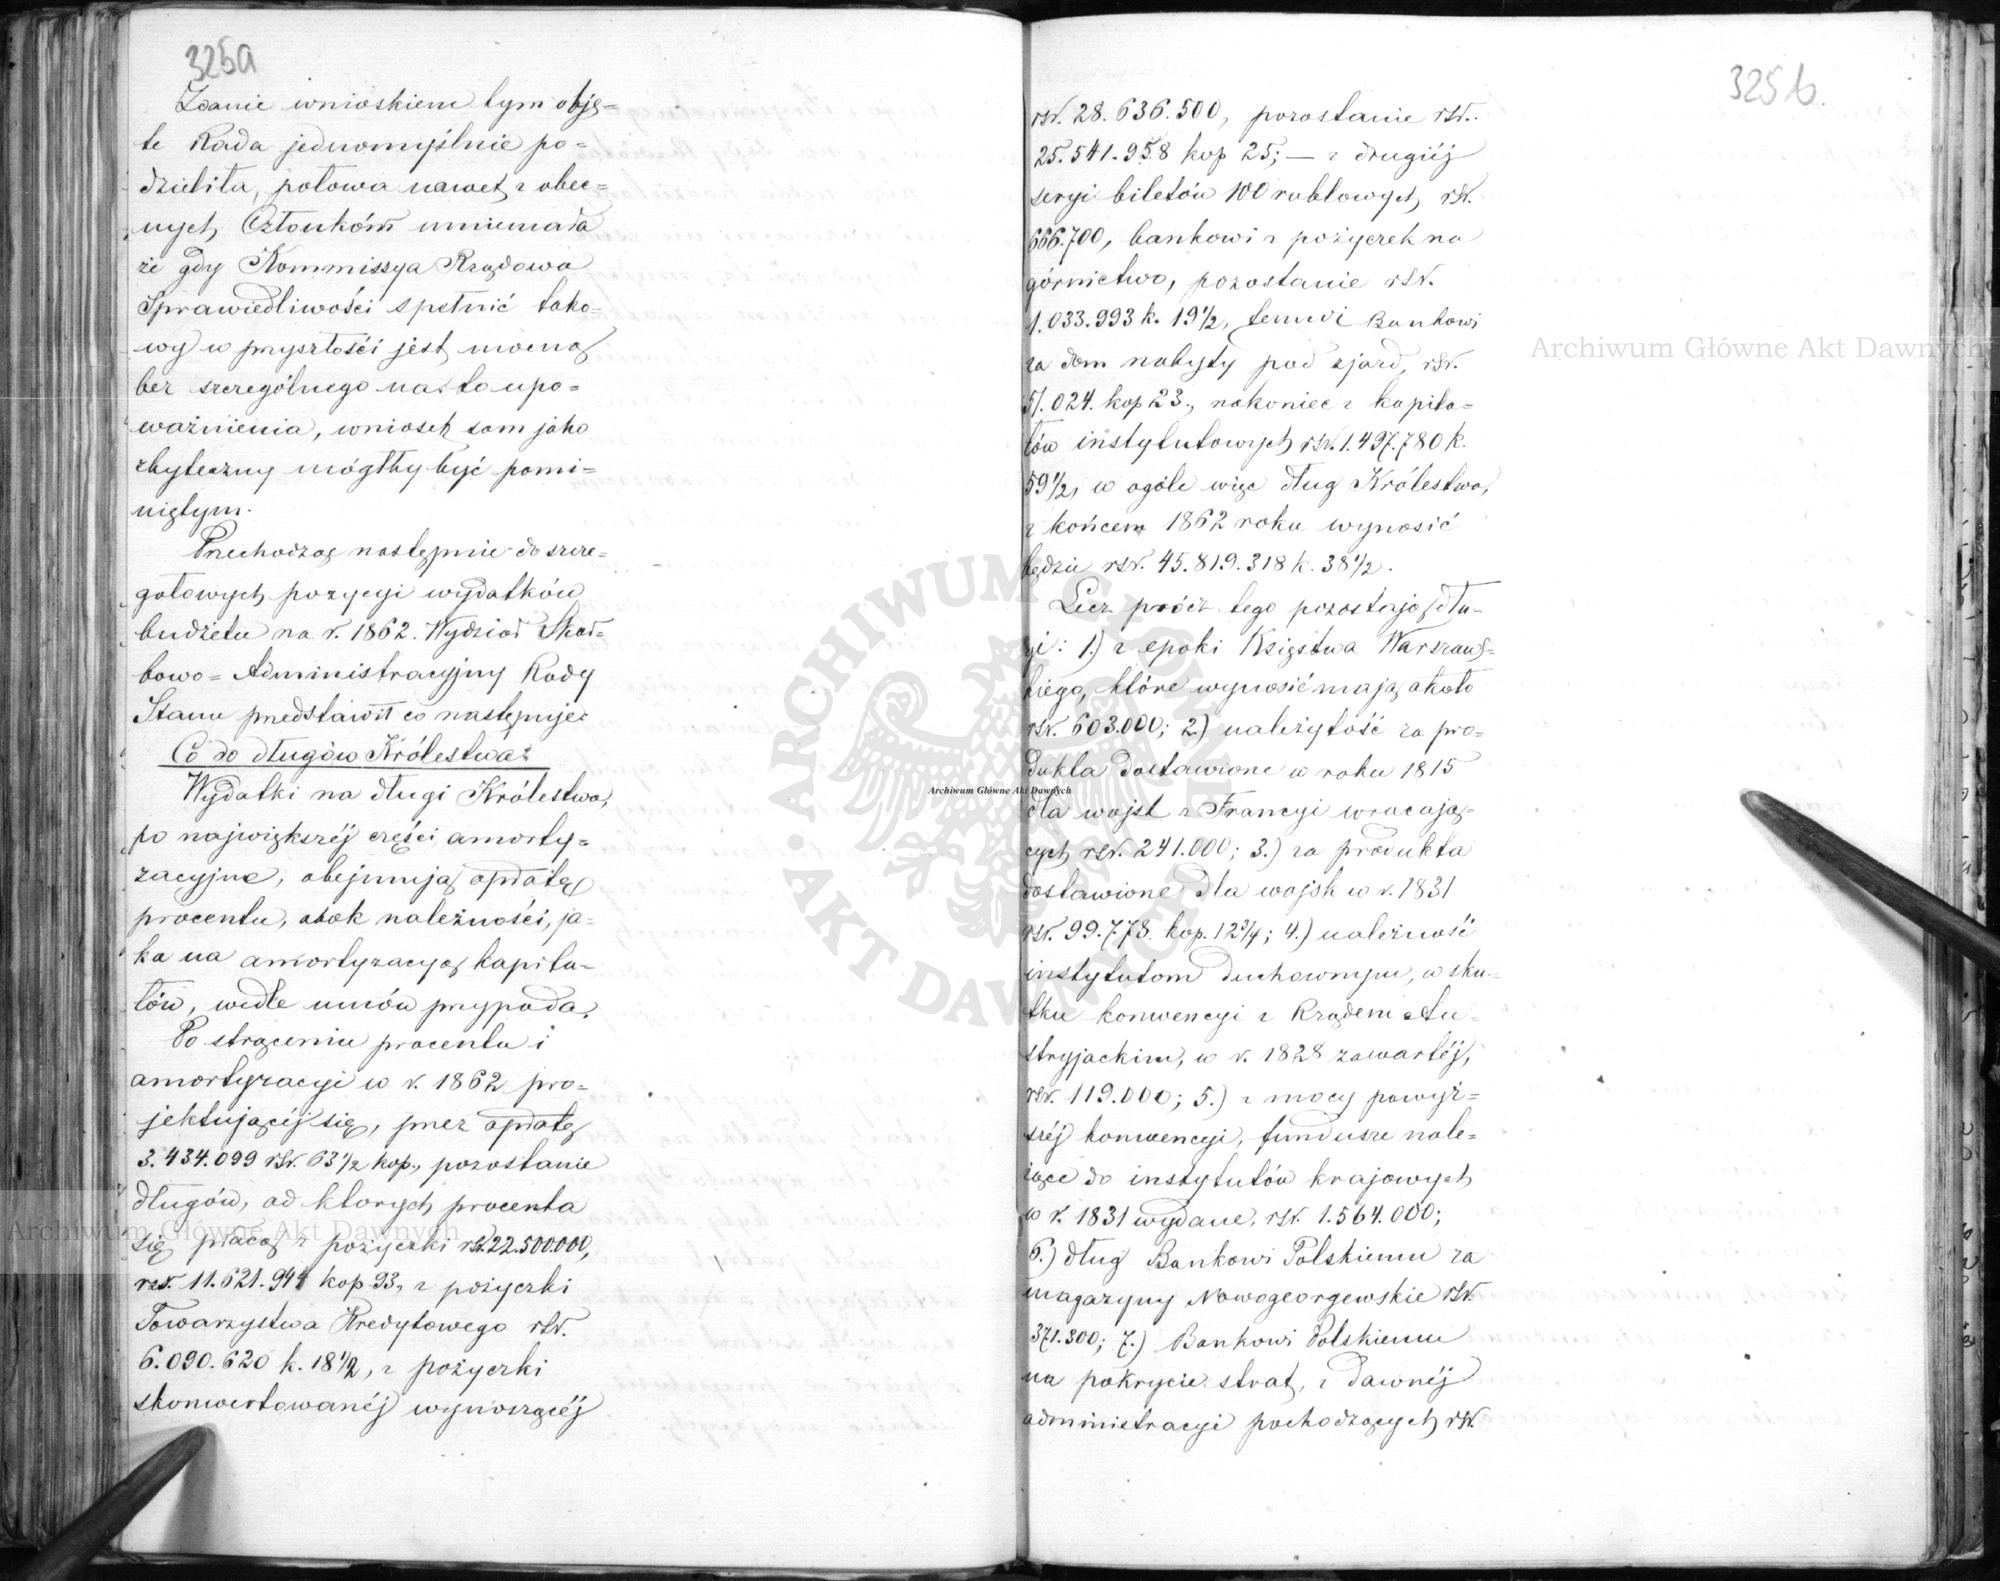 325a
Zdanie wnioskiem tym obję=
te Rada jednomyślnie po=
dzieliła, połowa nawet z obec=
nych Członków mniemała
że gdy Kommissya Rządowa
Sprawiedliwości spełnić tako=
wy w przyszłości jest mocną
bez szczególnego na to upo=
ważnienia, wniosek sam jako
zbyteczny mógłby być pomi=
niętym.
Przechodząc następnie do szcze=
gółowych pozycyi wydatków
budżetu na r. 1862. Wydział Skar=
bowo=Administracyjny Rady
Stanu przedstawił co następuje:
Co do długów Królestwa:
Wydatki na długi Królestwa,
po największéj części amorty=
zacyjne, obejmują opłatę
procentu, obok należności, ja=
ka na amortyzacyą kapita=
łów, wedle umów przypada.
Po strąceniu procentu i
amortyzacyi w r. 1862 pro=
jektującéj się, przez opłatę
3.434.099 rsr. 63 1/2 kop., pozostanie
długów, od ktorych procenta
się płacą z pożyczki rsr. 22.500.000,
rsr. 11.621.944 kop 93, z pożyczki
Towarzystwa Kredytowego rsr.
6.090.620 k. 18 1/2, z pożyczki
skonwertowanéj wynoszącéj
325b.
rsr. 28.636.500, pozostanie rsr.
25.541.958 kop 25; — z drugiéj
seryi biletów 100 rublowych rsr.
666.700, bankowi z pożyczek na
górnictwo, pozostanie rsr.
1.033.993 k. 19 1/2, temuż Bankowi
za dom nabyty pod zjazd, rsr.
51.024. kop 23., nakoniec z kapita=
łów instytutowych rsr. 1.497.780 k.
59 1/2, w ogóle więc dług Królestwa,
z końcem 1862 roku wynosić
będzie rsr. 45.819.318 k. 38 1/2.
Lecz prócz tego pozostają dłu=
gi: 1.) z epoki Księstwa Warszaws=
kiego, które wynosić mają około
rsr. 603.000; 2.) należytość za pro=
dukta dostawione w roku 1815
dla wojsk z Francyi wracają=
cych rsr. 241.000; 3.) za produkta
dostawione dla wojsk w r. 1831
rsr. 99.778. kop. 12 3/4; 4.) należność
instytutom duchownym, w sku=
tku konwencyi z Rządem Au=
stryjackim, w r. 1828 zawartéj,
rsr. 119.000; 5.) z mocy powyż=
széj konwencyi, fundusze nale=
żące do instytutów krajowych
w r. 1831 wydane, rsr. 1.564.000;
6.) dług Bankowi Polskiemu za
magazyny Nowogeorgewskie rsr.
371.300; 7.) Bankowi Polskiemu
na pokrycie strat, z dawnéj
administracyi pochodzących rsr.
Archiwum Główne Akt Dawnych
Archiwum Główne Akt Dawnych
Archiwum Główne Akt Dawnych
ARCHIWUM GŁÓWNE
AKT DAWNYCH